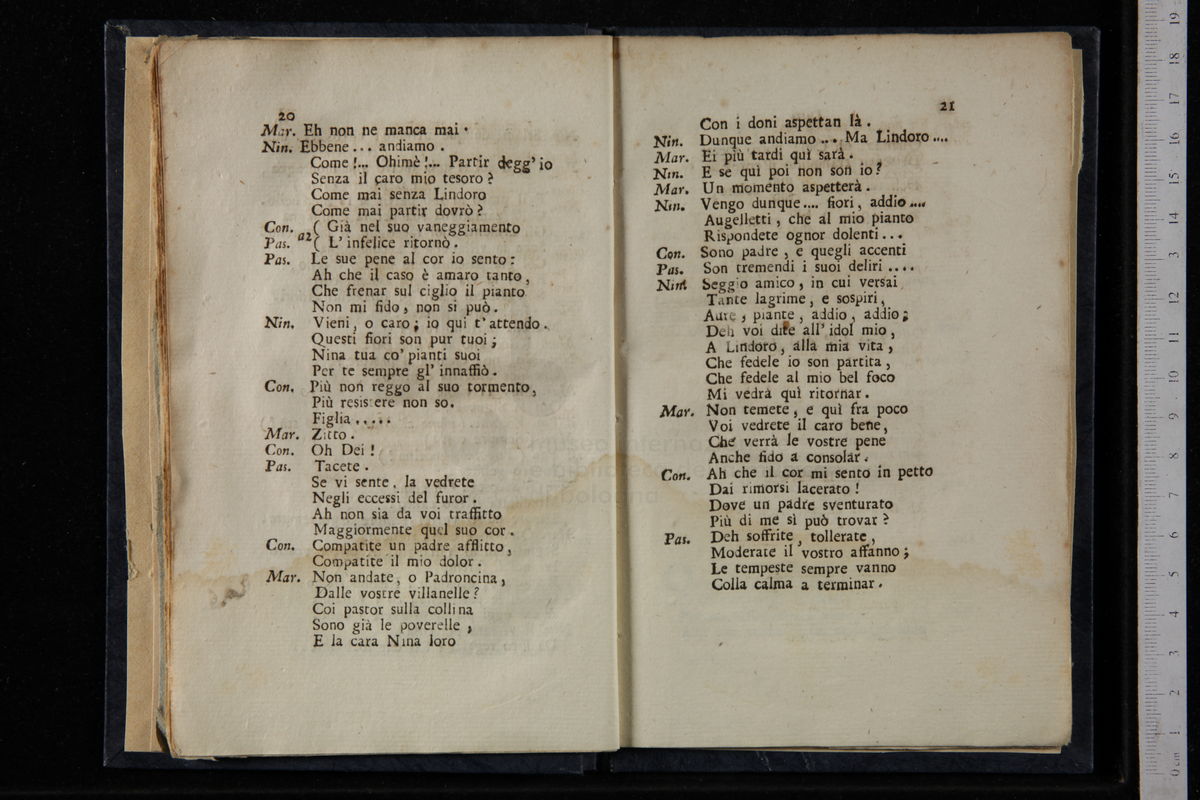 20
Mar. Eh non ne manca mai.
Nin. Ebbene... andiamo.
Come!... Ohimè!... Partir degg' io
Senza il caro mio tesoro?
Come mai senza Lindoro
Come mai partir dovrò?
Con. ( Già nel suo vaneggiamento
Pas. a2 ( L' infelice ritornò.
Pas. Le sue pene al cor io sento:
Ah che il caso è amaro tanto,
Che frenar sul ciglio il pianto
Non mi fido, non si può.
Nin. Vieni, o caro; io qui t' attendo.
Questi fiori son pur tuoi;
Nina tua co' pianti suoi
Per te sempre gl' innaffiò.
Con. Più non reggo al suo tormento,
Più resistere non so.
Figlia.....
Mar. Zitto.
Con. Oh Dei!
Pas. Tacete.
Se vi sente, la vedrete
Negli eccessi del furor.
Ah non sia da voi traffitto
Maggiormente quel suo cor.
Con. Compatite un padre afflitto,
Compatite il mio dolor.
Mar. Non andate, o Padroncina,
Dalle vostre villanelle?
Coi pastor sulla collina
Sono già le poverelle,
E la cara Nina loro
21
Con i doni aspettan là.
Nin. Dunque andiamo... Ma Lindoro....
Mar. Ei più tardi quì sarà.
Nin. E se quì poi non son io?
Mar. Un momento aspetterà.
Nin. Vengo dunque.... fiori, addio....
Augelletti, che al mio pianto
Rispondete ognor dolenti...
Con. Sono padre, e quegli accenti
Pas. Son tremendi i suoi deliri....
Nin. Seggio amico, in cui versai
Tante lagrime, e sospiri,
Aure, piante, addio, addio;
Deh voi dite all' idol mio,
A Lindoro, alla mia vita,
Che fedele io son partita,
Che fedele al mio bel foco
Mi vedrà quì ritornar.
Mar. Non temete, e quì fra poco
Voi vedrete il caro bene,
Che verrà le vostre pene
Anche fido a consolar.
Con. Ah che il cor mi sento in petto
Dai rimorsi lacerato!
Dove un padre sventurato
Più di me sì può trovar?
Pas. Deh soffrite, tollerate,
Moderate il vostro affanno;
Le tempeste sempre vanno
Colla calma a terminar.